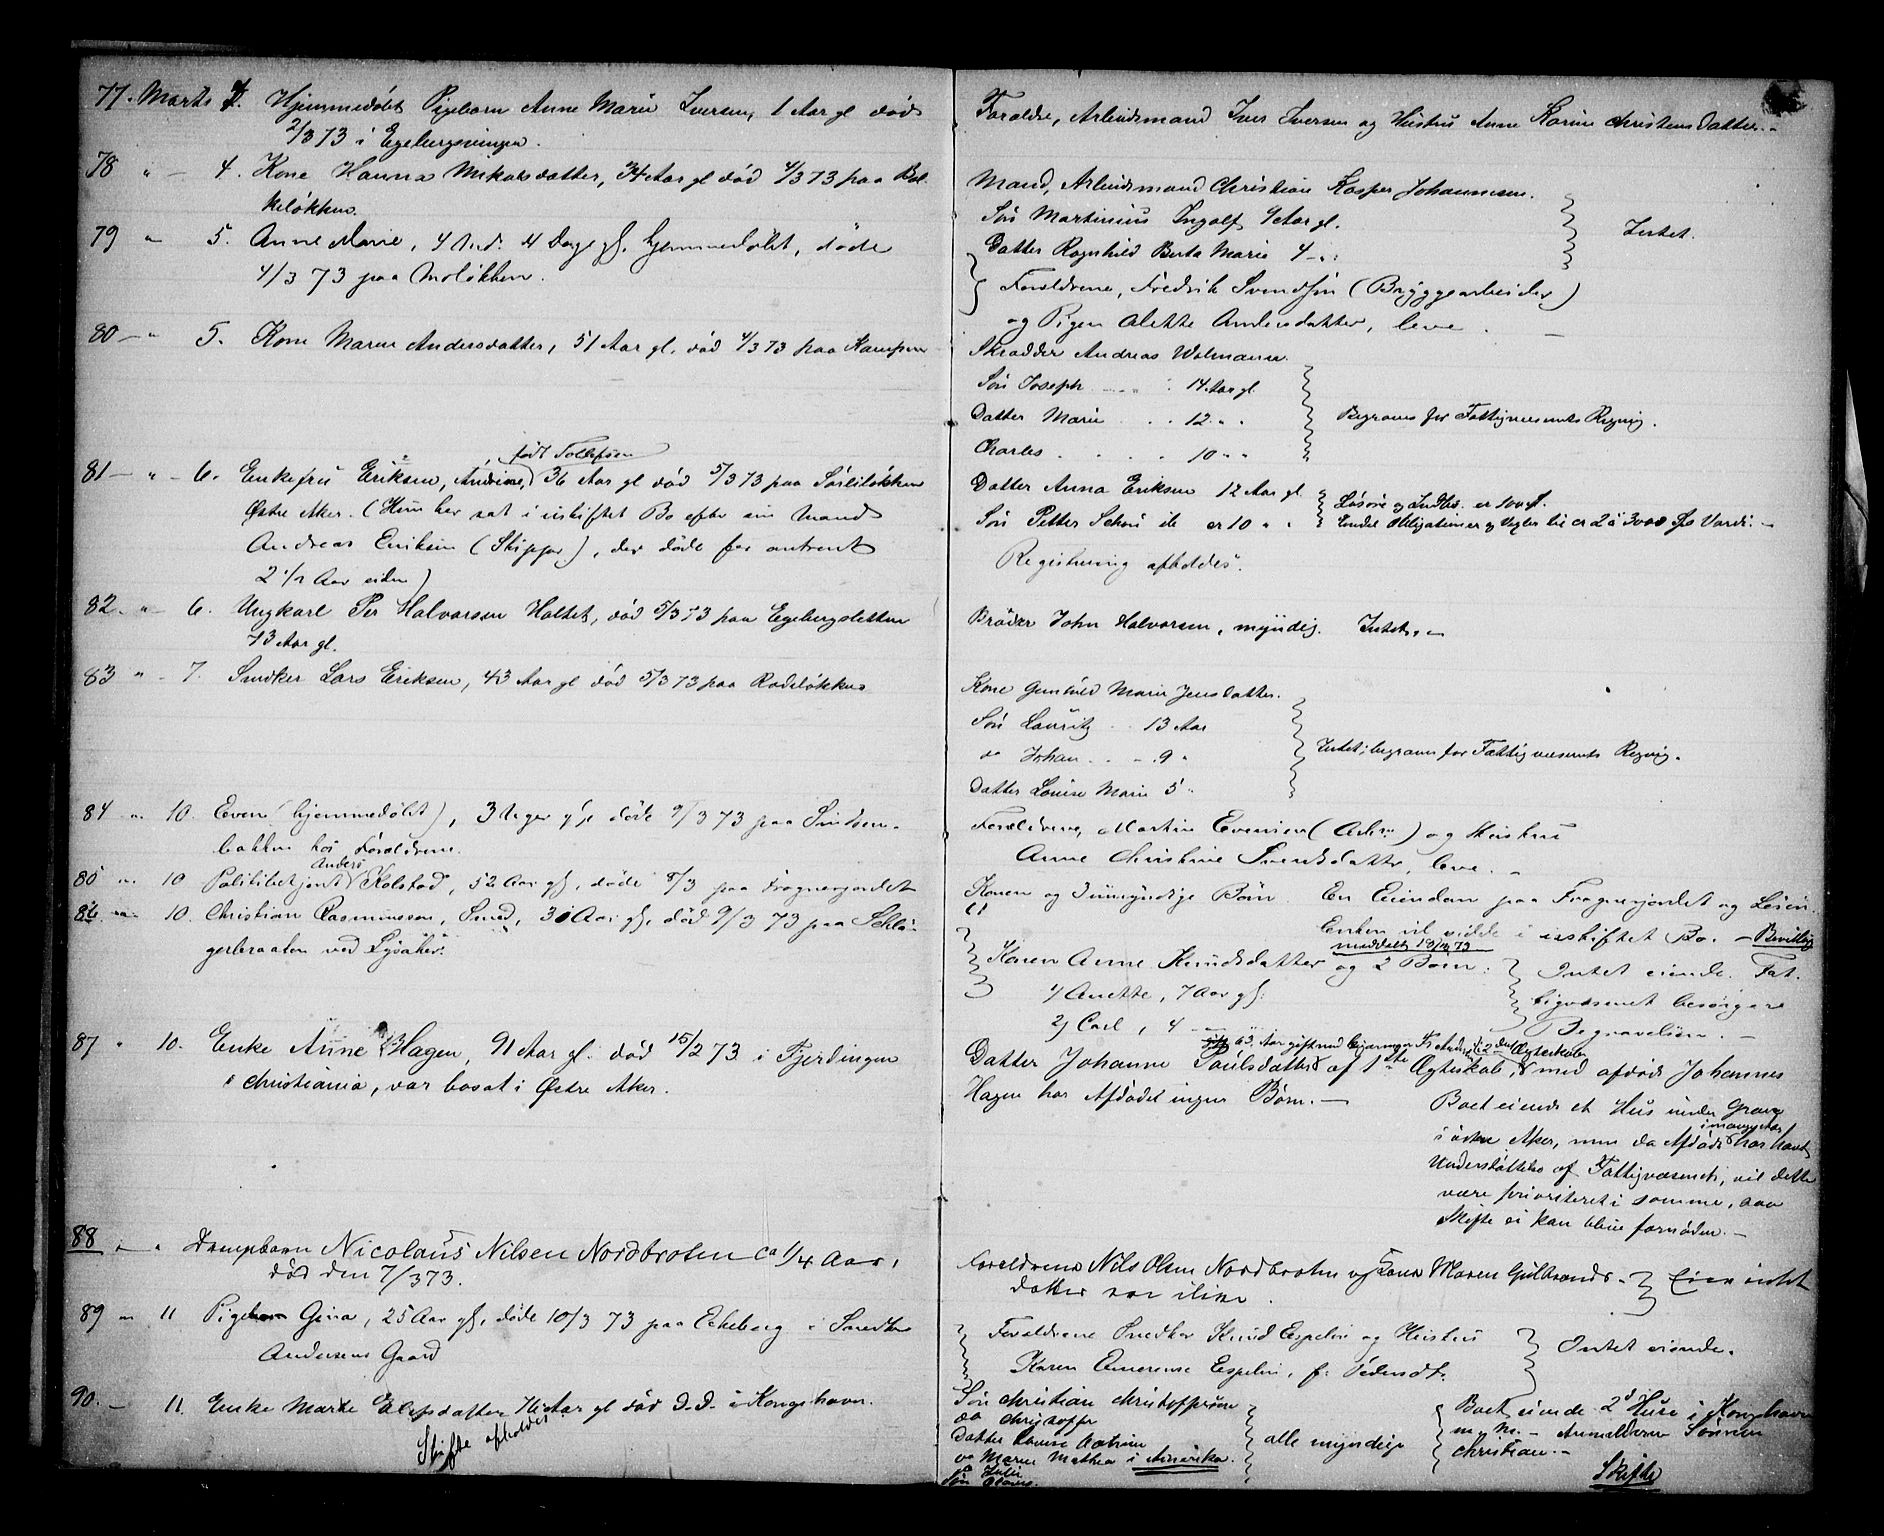 77. Marts 4. Hjemmedøbt Pigebarn Anne Marie Iversen, 1 Aar gl død
2/3 73 i Egebergsvingen.
Forældre, Arbeidsmand Iver Iversen og Hustru Anne Karine Christensdatter.
78 " - 4. Kone Hanna Mikalsdatter, 34 Aar gl død 4/3 73 paa Bol-
keløkken.
Mand, Arbeidsmand Christian Kasper Johannesen.
Søn Martinius Ingolf 9 Aar gl.
Datter Ragnhild Berta Marie 4 - "
Intet.
79 " 5. Anne Marie, 4 Md. 4 Dage gl. hjemmedøbt, døde
4/3 73 paa Moløkken.
Forældrene, Fredrik Svendsen (Bryggearbeider)
og Pigen Alette Andersdatter, leve. -
80 - " 5. Kone Maren Andersdatter, 51 Aar gl. død 4/3 73 paa Kampen
Skrædder Andreas Wolmann.
Søn Joseph 14 Aar gl.
Datter Marie 12 " "
Charles 10 " "
Begraves for Fattigvæsenets Regning.
født Tollefsen
81 - " - 6. Enkefru Eriksen, Andrine, 36 Aar gl død 5/3 73 paa Sørliløkken
Østre Aker. (Hun har sat i uskiftet Bo efter sin Mand
Andreas Eriksen (Skipper), der døde for omtrent
2 1/2 Aar siden)
Datter Anna Eriksen 12 Aar gl.
Søn Petter er 10 " "
Løsøre og Indbo er
Endel Obligationer og Vexler til ca 2 à 3000 Sp Værdi. -
Registrering afholdes.
82. " - 6. Ungkarl Per Halvorsen Holtet, død 5/3 73 paa Egebergsletten
73 Aar gl.
Broder John Halvorsen, myndig. Intet. -
83 " - 7. Snedker Lars Eriksen, 43 Aar gl død 5/3 73 paa Rodeløkken
Kone Gunhild Marie Jensdatter.
Søn Lauritz 13 Aar
do Johan 9 "
Datter Louise Marie 5 "
Intet; begraves for Fattigvæsenets Regning.
84 " 10. Even (hjemmedøbt), 3 Uger gl, døde 9/3 73 paa Smidsen-
bakken hos Forældrene.
Forældrene, Martin Evensen (Arb.) og Hustru
Anne Christine Svensdatter, leve. -
Anders
85 " 10 Politibetjent Kolstad, 52 Aar gl, døde 8/3 paa Frognerjordet
Konen og Umyndige Børn. En Eiendom paa Frognerjordet og Løsøre.
Enken vil sidde i uskiftet Bo. - Bevilling
meddelt 18/3 73
86 " 10. Christian Rasmussen, Smed, 30 Aar gl, død 9/3 73 paa Schlø-
gerbraaten ved Lysaker.
Konen Anne Knudsdatter og 2 Børn:
1) Anette, 7 Aar gl.
2) Carl, 4 -
Intet eiende. Fat-
tigvæsenet besørger
Begravelsen. -
87 " 10. Enke Anne Hagen, 91 Aar gl. død 15/2 73 i Fjerdingen
i Christiania, var bosat i Østre Aker.
63 Aar gift med i 2det Ægteskab
Datter Johanne Paulsdatter af 1ste Ægteskab, med afdøde Johannes
Hagen har Afdøde ingen Børn. -
Boet eiende et Hus under Grav
i Østre Aker, men da Afdøde har havt
i mange Aar
Understøttelse af Fattigvæsenet, vil dette
være prioriteret i samme, saa
Skifte ei kan blive fornøden. -
88 " " Drengebarn Nicolaus Nilsen Nordbroten ca 1/4 Aar,
død den 7/3 73.
Forældrene Nils Olsen Nordbroten og Kone Maren Gulbrands-
datter
Eier intet
89 " 11 Pige Gina, 25 Aar gl, døde 10/3 73 paa Ekeberg i Snedker
Andersens Gaard
Forældrene Snedker Knud Espelin og Hustru
Karen Emerense Espelin, f. Pedersdt.
Intet eiende.
90. - 11. Enke Marte Elefsdatter 76 Aar gl død d.D. i Kongshavn.
Skifte afholdes.
Søn Christian Christoffersen
do Christoffer
Datter Louise Catrine
do Maren Mathea i Amerika.
do Julie
Søn Olaves.
alle myndige
Boet eiende 2 Huse i Kongshavn
m. M. - Anmelderen Sønnen
Christian. -
Skifte